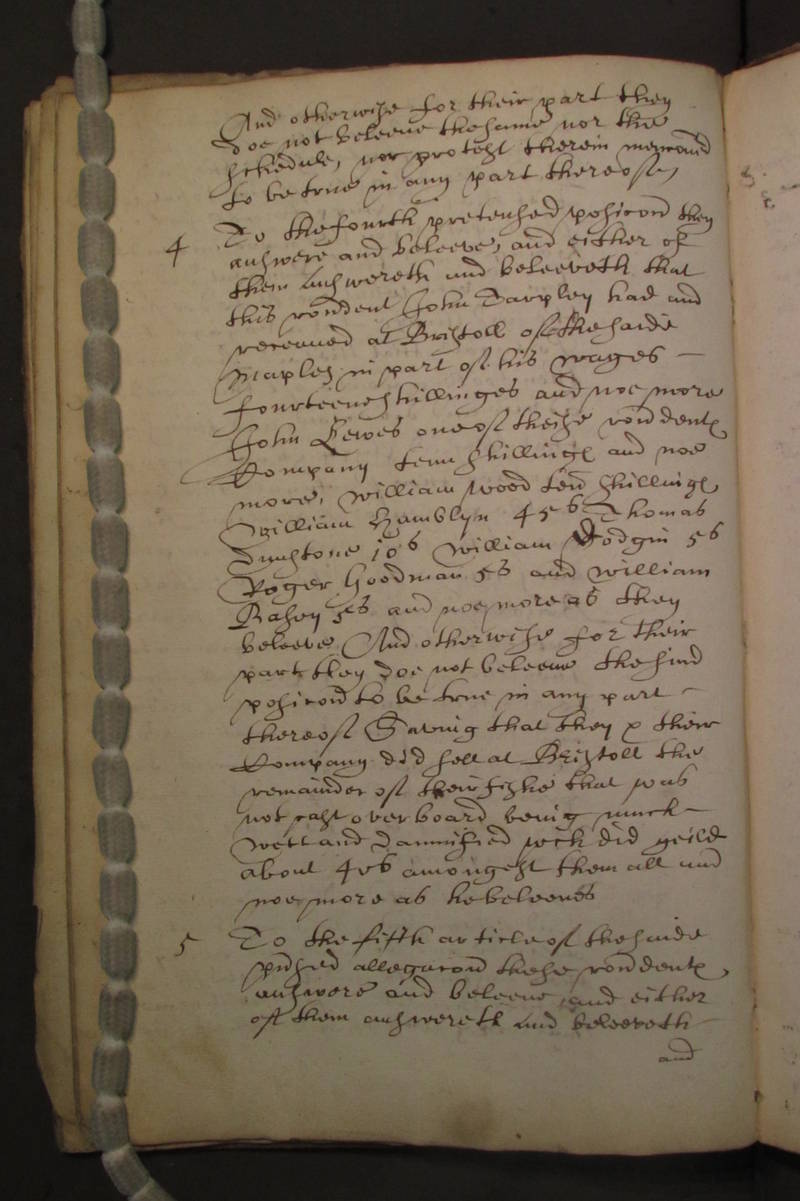 And otherwise for their part they
doe not beleeve the same nor the
schedule, nor protest therein menconed
to be true in any part thereof,
4 To the fourth pretensed posicon they
answere and beleeve, and either of
them answereth and beleeveth that
this rondent John Tarpley had and
received at Bristoll of the saide
Maples in part of his wages
fourteene shillinges and noe more
John Lewes one of theise rondentes
Company tenn shillinges and noe
more, William Wood tenn shillinges
William Hamblyn 45s Thomas
Dunstone 10s William Dodgin 5s
Roger Goodman 5s and William
5s and noe more as they
beleeve And otherwise for their
part they doe not beleeve the said
posicon to be true in any part
thereof Saving that they & their
Company did sell at Bristoll the
remainder of their fishe that was
not cast overboard being much
wett and damnified wch did yeild
about 40s amongest them all and
noe more as he beleeves
5 To the fifth article of the saide
prtensed allegacon these rondentes
answere and beleeve, and either
of them answereth and beleeveth
and